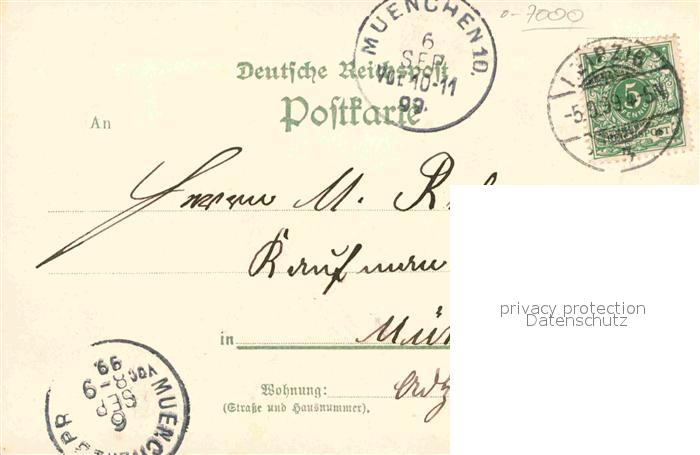 o-7000
MUENCHEN 10.
6
SEP
Vor. 10-11
99.
LEIPZIG
-5.9.99.
5
Deutsche Reichspost
Postkarte
An
Herrn M.
Kaufmann
in
Wohnung:
(Straße und Hausnummer).
privacy protection
Datenschutz
MUENCHEN
6
SEP
8-9
Vor.
99.